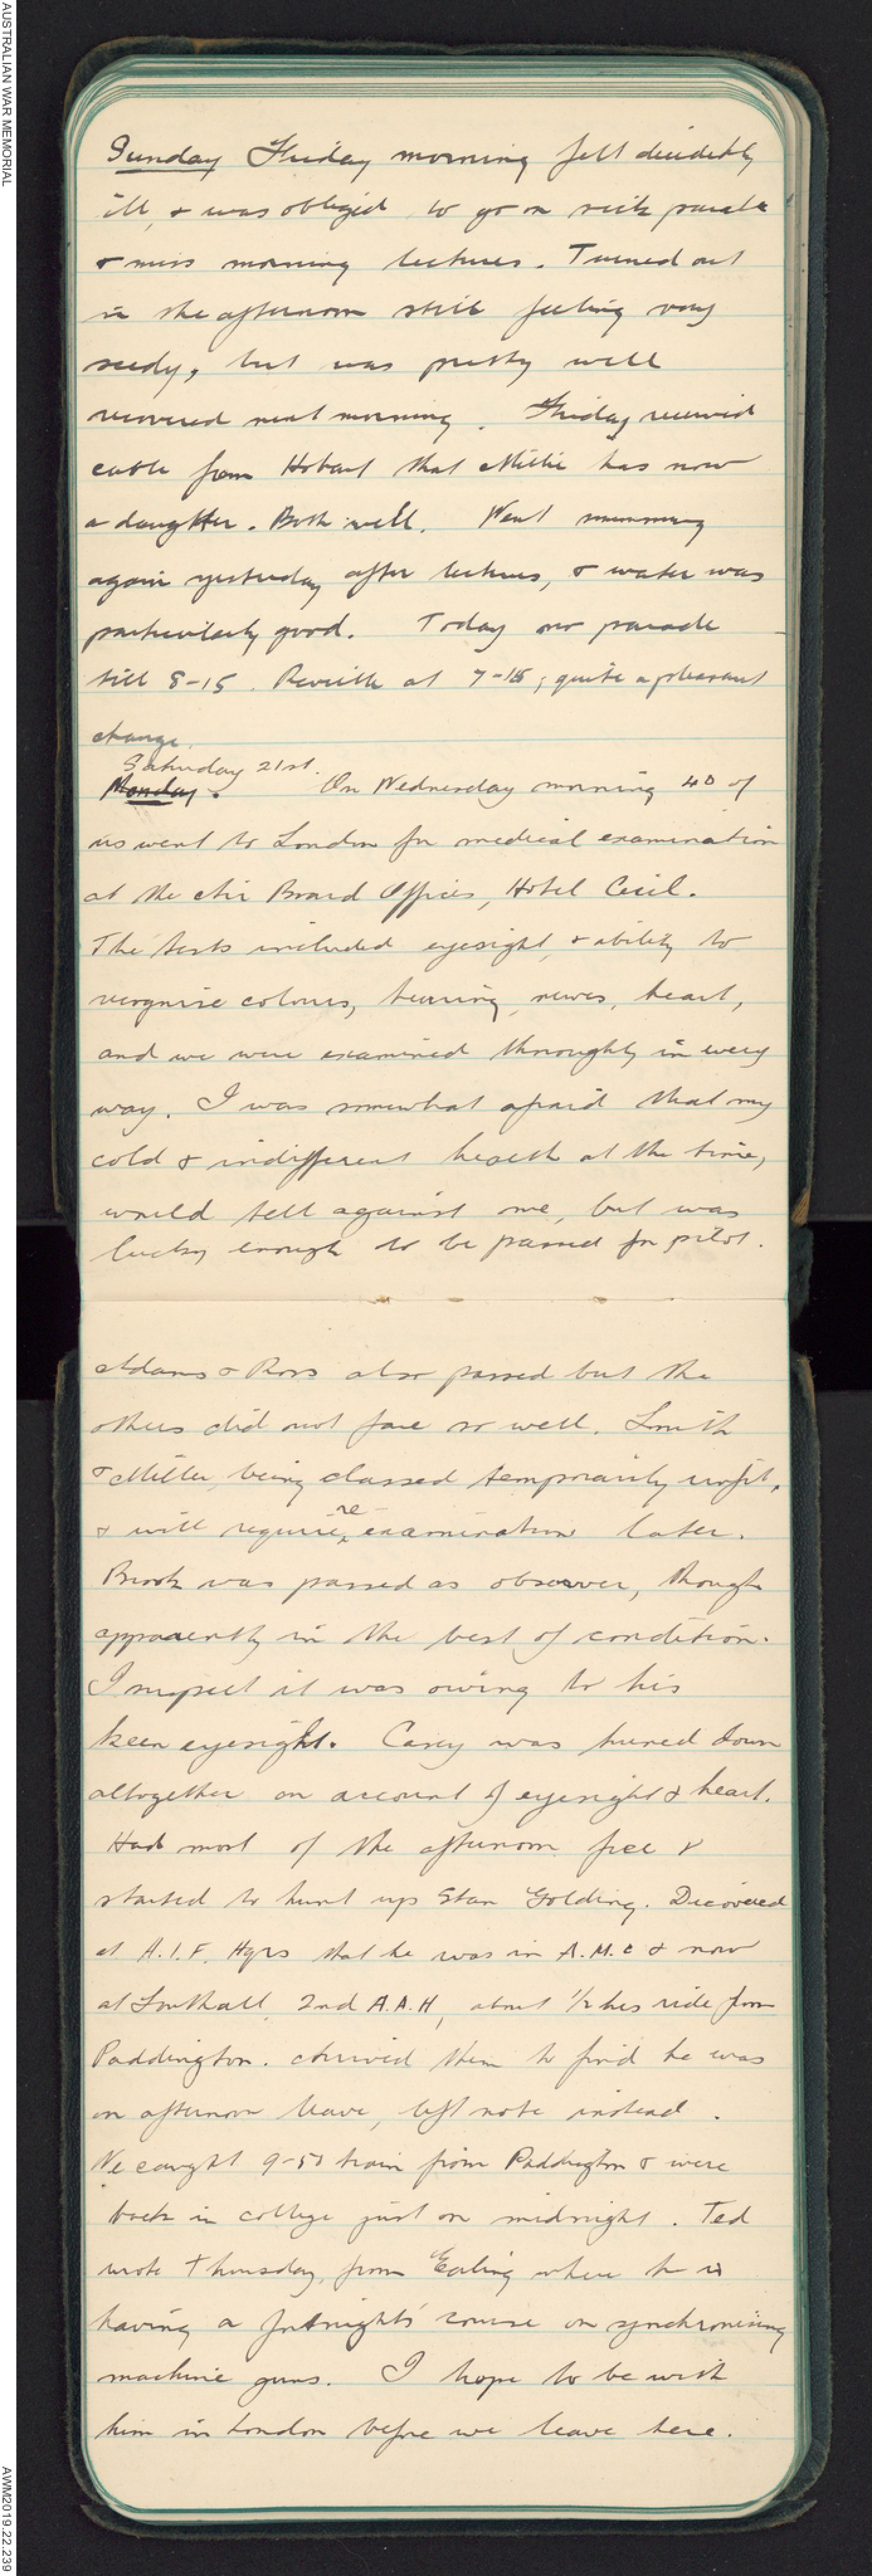 AUSTRALIAN WAR MEMORIAL
Sunday Friday morning felt decidedly
ill, & was obliged to go on sick parade
& miss morning lectures. Turned out
in the afternoon still feeling very
seedy, but was pretty well
recovered next morning. Friday received
cable from Hobart that Millie has now
a daughter. Both well. Went swimming
again yesterday after lectures, & water was
particularly good. Today no parade
till 8-15. Reveille at 7-15; quite a pleasant
change.
Saturday 21st.
Monday. On Wednesday morning 40 of
us went to London for medical examination
at the Air Board Offices, Hotel Cecil.
The tests included eyesight, & ability to
recognise colours, hearing, nerves, heart,
and we were examined thoroughly in every
way. I was somewhat afraid that my
cold & indifferent health at the time,
would tell against me, but was
lucky enough to be passed for pilot.
Adams & Ross also passed but the
others did not fare so well. Smith
& Miller being classed temporarily unfit,
& will require re examination later.
Brook was passed as observer, though
apparently in the best of condition.
I suspect it was owing to his
keen eyesight. Carey was turned down
altogether on account of eyesight & heart.
Had most of the afternoon free &
started to hunt up Stan Golding. Discovered
at A.I.F. Hqrs that he was in A.M.C & now
at Southall, 2nd A.A.H, about 1/2 hrs ride from
Paddington. Arrived there to find he was
on afternoon leave, left note instead.
We caught 9-50 train from Paddington & were
back in college just on midnight. Ted
wrote Thursday, from Ealing where he is
having a fortnight's course on synchronising
machine guns. I hope to be with
him in London before we leave here.
AWM2019.22.239